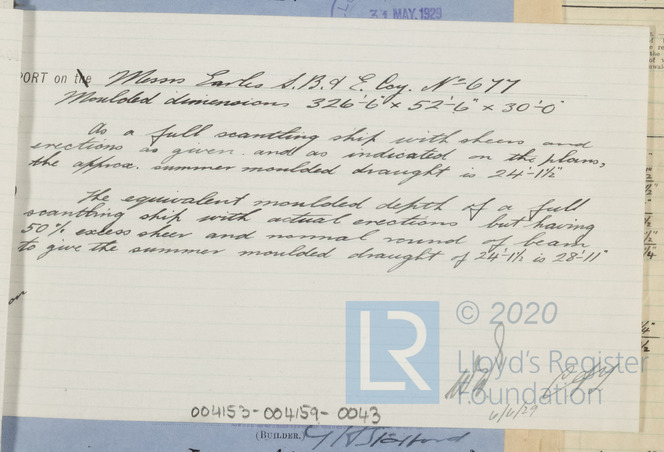 31 MAY. 1929
PORT on the Messrs Earles S.B. & E. Coy. No 677
Moulded dimensions 326'-6" x 52'-6" x 30'-0"
As a full scantling ship with sheers and
erections as given and as indicated on the plans,
the approx. summer moulded draught is 24'-1½"
The equivalent moulded depth of a full
scantling ship with actual erections but having
50% excess sheer and normal round of beam
to give the summer moulded draught of 24'-1½" is 28'-11"
© 2020
LR
Lloyd's Register
Foundation
Copy
6/6/29
004153-004159-0043
(BUILDER.)